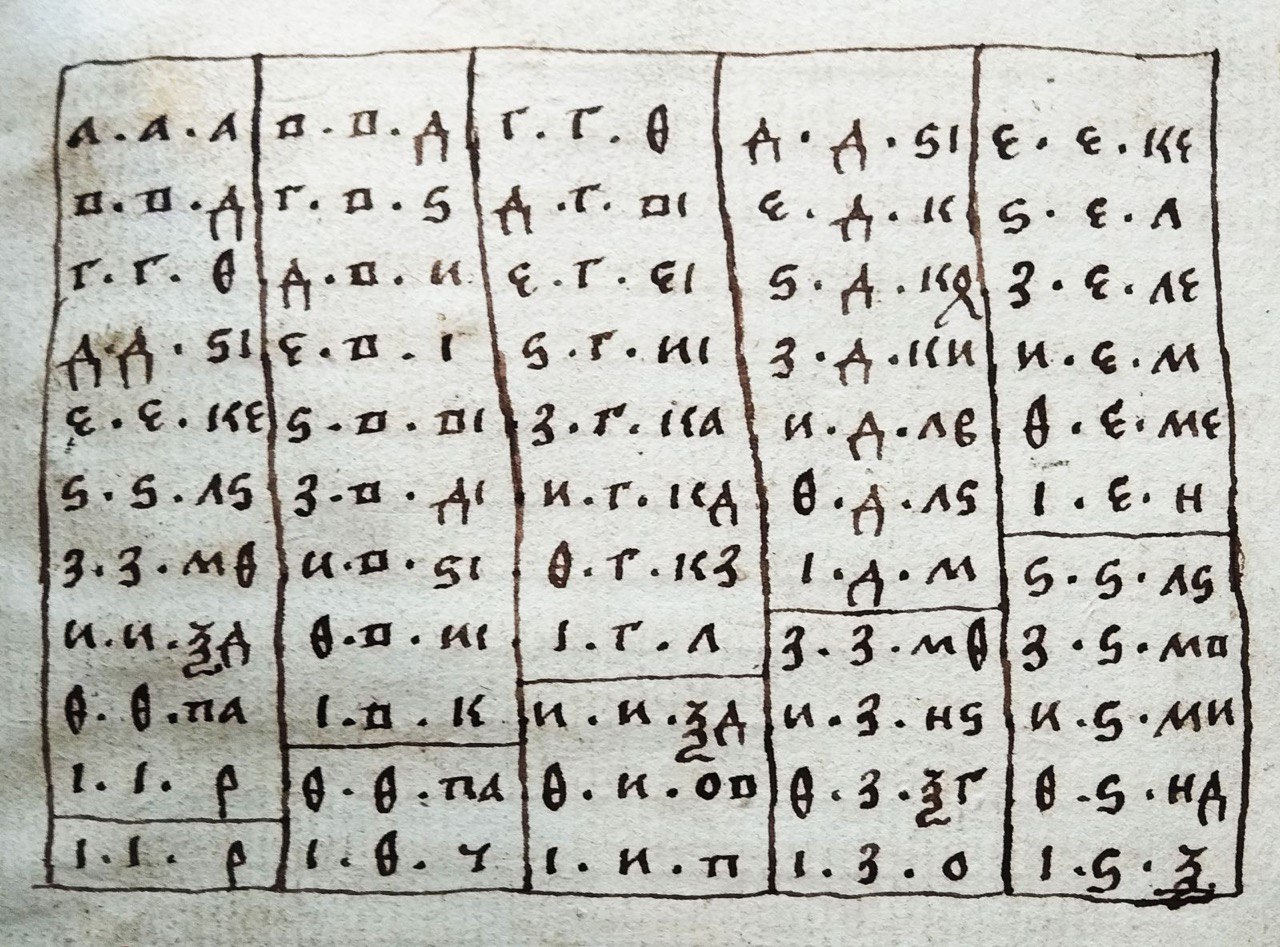 а . а . а
в . в . д
г . г . ѳ
д . д . ѕі
є . є . кє
ѕ . ѕ . лѕ
з . з . мѳ
и . и . ѯд
ѳ . ѳ . па
і . і . р
і . і . р
в . в . д
г . в . ѕ
д . в . и
є . в . і
ѕ . в . ві
з . в . ді
и . в . ѕі
ѳ . в . иі
і . в . к
ѳ . ѳ . па
і . ѳ . ч
г . г . ѳ
д . г . ві
є . г . єі
ѕ . г . иі
з . г . ка
и . г . кд
ѳ . г . кз
і . г . л
и . и . ѯд
ѳ . и . ов
і . и . п
д . д . ѕі
є . д . к
ѕ . д . кд
з . д . ки
и . д . лв
ѳ . д . лѕ
і . д . м
з . з . мѳ
и . з . нѕ
ѳ . з . ѯг
і . з . о
є . є . кє
ѕ . є . л
з . є . лє
и . є . м
ѳ . є . мє
і . є . н
ѕ . ѕ . лѕ
з . ѕ . мв
и . ѕ . ми
ѳ . ѕ . нд
і . ѕ . ѯ